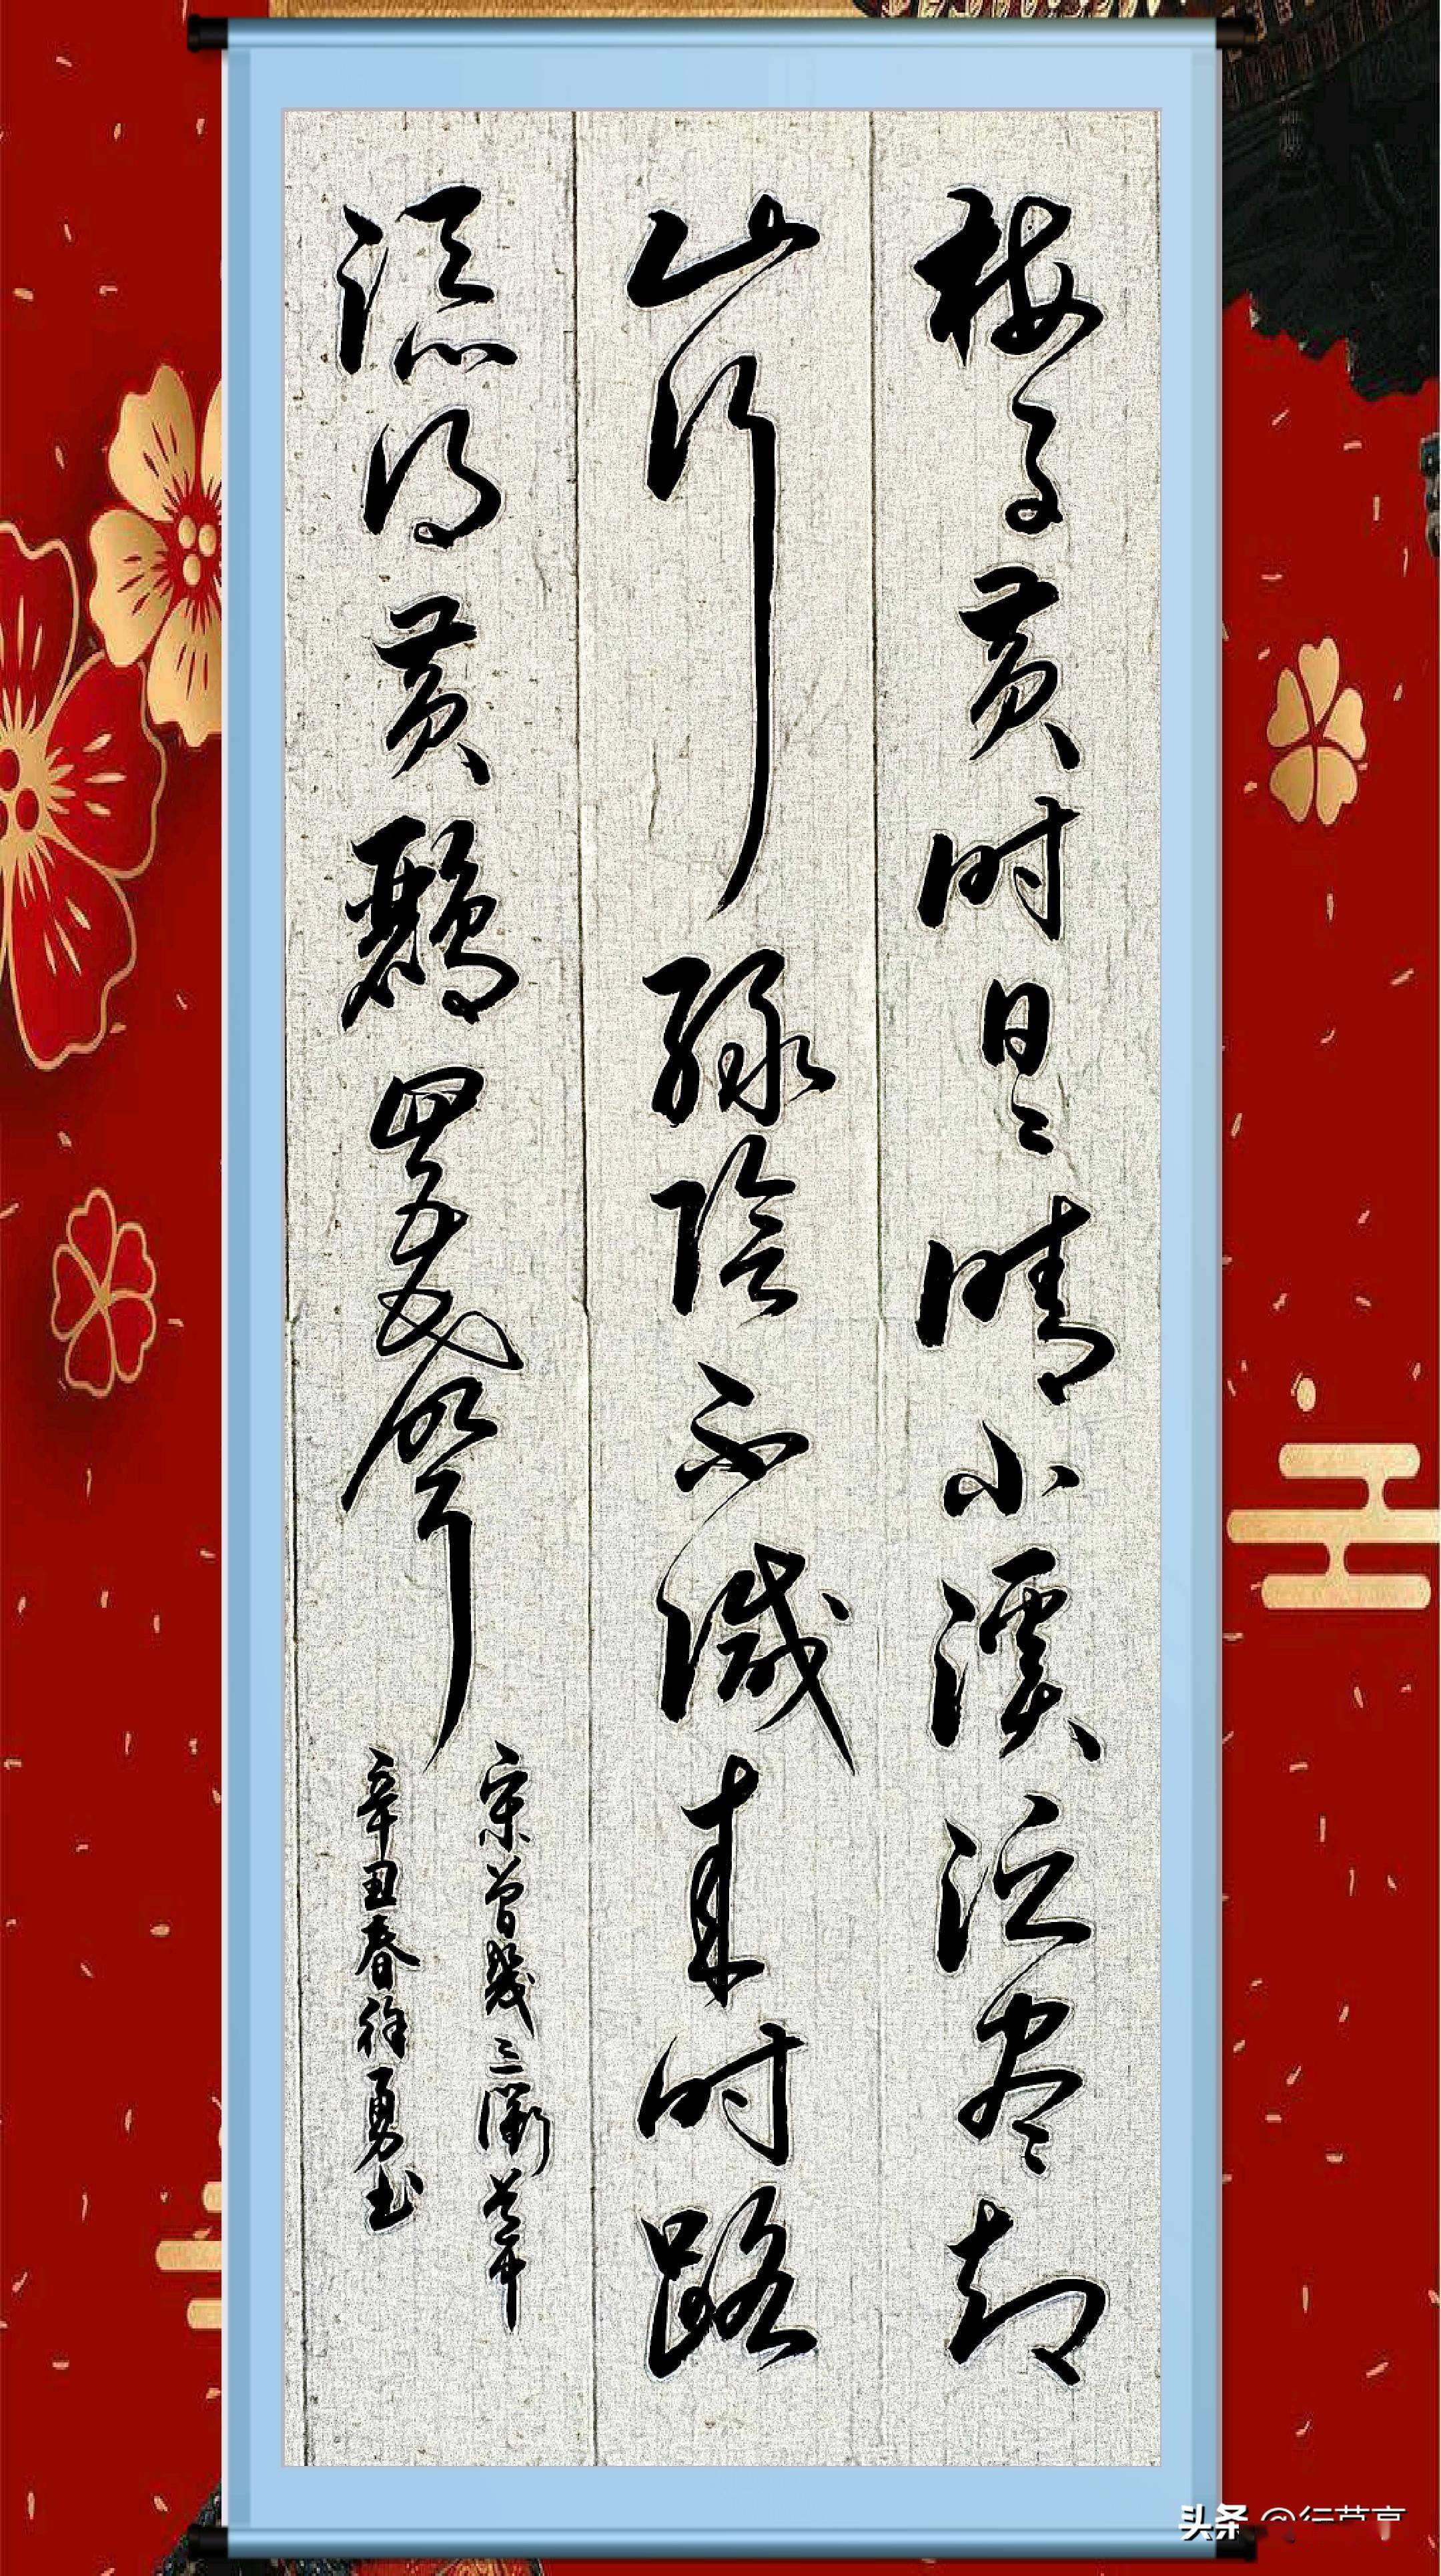 梅子黄时日日晴小溪泛尽却
山行绿阴不減来时路
添得黄鸝四五聲
宋曾幾三衢道中
辛丑春徐勇书
头条